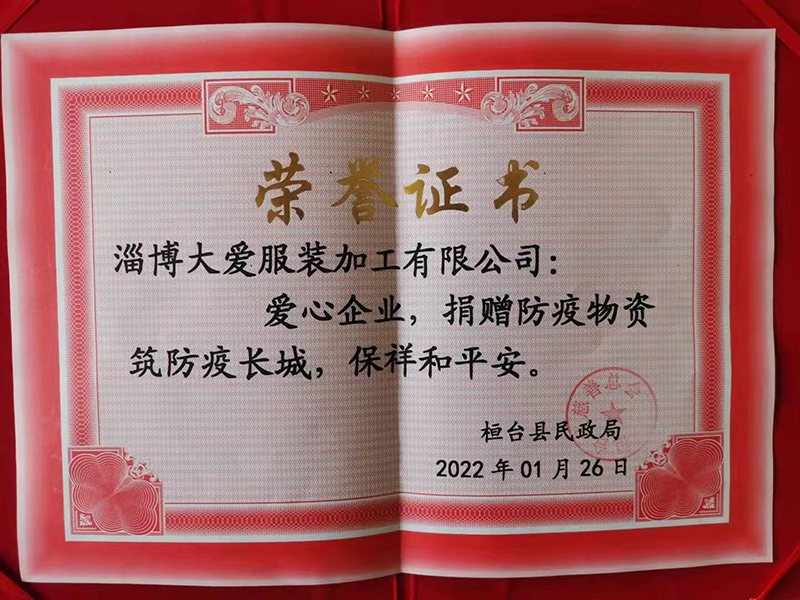 荣誉证书
淄博大爱服装加工有限公司：
爱心企业，捐赠防疫物资
筑防疫长城，保祥和平安。
慈善总会
桓台县民政局
2022年01月26日